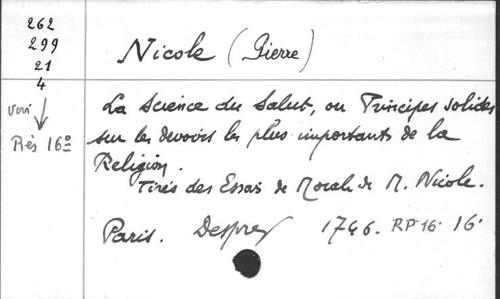 262
299
21
4
voir
Rés 16º
Nicole (Pierre)
La Science du Salut, ou Principes solides
sur les devoirs les plus importants de la
Religion.
Tirés des Essais de Morale de M. Nicole.
Paris. Desprez 1746. RP·16· 16·